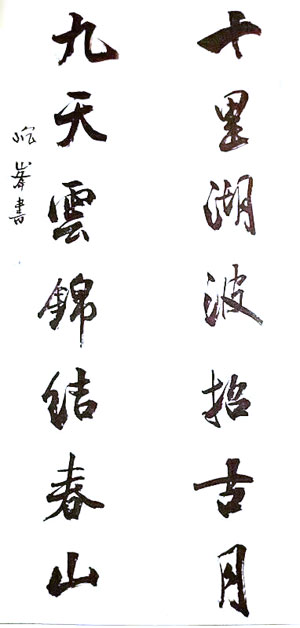 十里湖波招古月
九天雲錦結春山
峯書